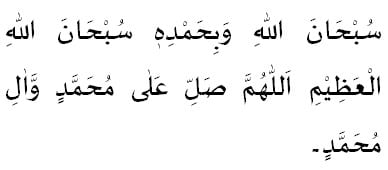 سُبْحَانَ اللّٰهِ وَبِحَمْدِهٖ سُبْحَانَ اللّٰهِ
الْعَظِيْمِ اَللّٰهُمَّ صَلِّ عَلٰى مُحَمَّدٍ وَّاٰلِ
مُحَمَّدٍ۔